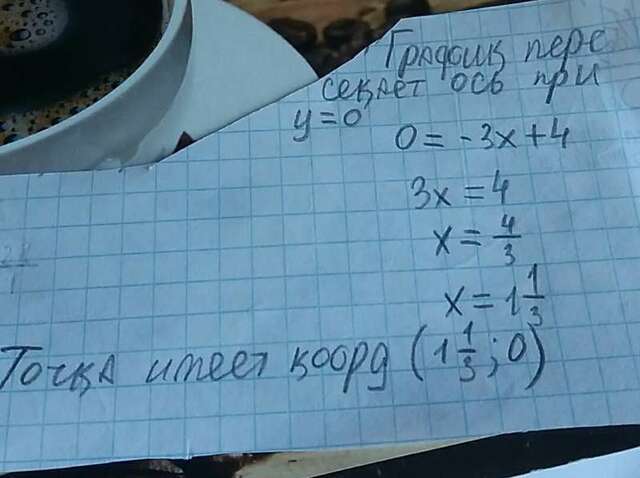 График пере
секает ось при
y=0
0 = -3x+4
3x = 4
x = 4/3
x = 1 1/3
Точка имеет коорд (1 1/3; 0)